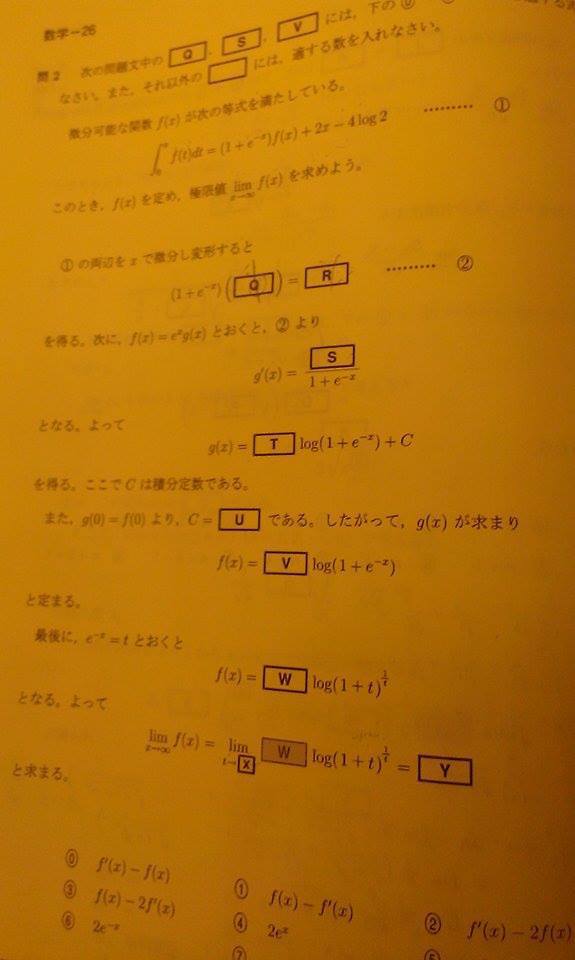 数学-26
問2 次の問題文中の Q , S , V には,下の ⓪
なさい。また,それ以外の には,適する数を入れなさい。
微分可能な関数 f(x) が次の等式を満たしている。
∫₀ˣ f(t)dt = (1+e⁻ˣ)f(x) + 2x − 4 log 2 ……… ①
このとき,f(x) を定め,極限値 lim_{x→∞} f(x) を求めよう。
① の両辺を x で微分し変形すると
(1+e⁻ˣ)( Q ) = R ……… ②
を得る。次に,f(x) = eˣg(x) とおくと,② より
g′(x) = S / (1+e⁻ˣ)
となる。よって
g(x) = T log(1+e⁻ˣ) + C
を得る。ここで C は積分定数である。
また,g(0) = f(0) より,C = U である。したがって,g(x) が求まり
f(x) = V log(1+e⁻ˣ)
と定まる。
最後に,e⁻ˣ = t とおくと
f(x) = W log(1+t)^{1/t}
となる。よって
lim_{x→∞} f(x) = lim_{t→X} W log(1+t)^{1/t} = Y
と求まる。
⓪ f′(x) − f(x) ① f(x) − f′(x) ② f′(x) − 2f(x)
③ f(x) − 2f′(x) ④ 2eˣ
⑥ 2e⁻ˣ